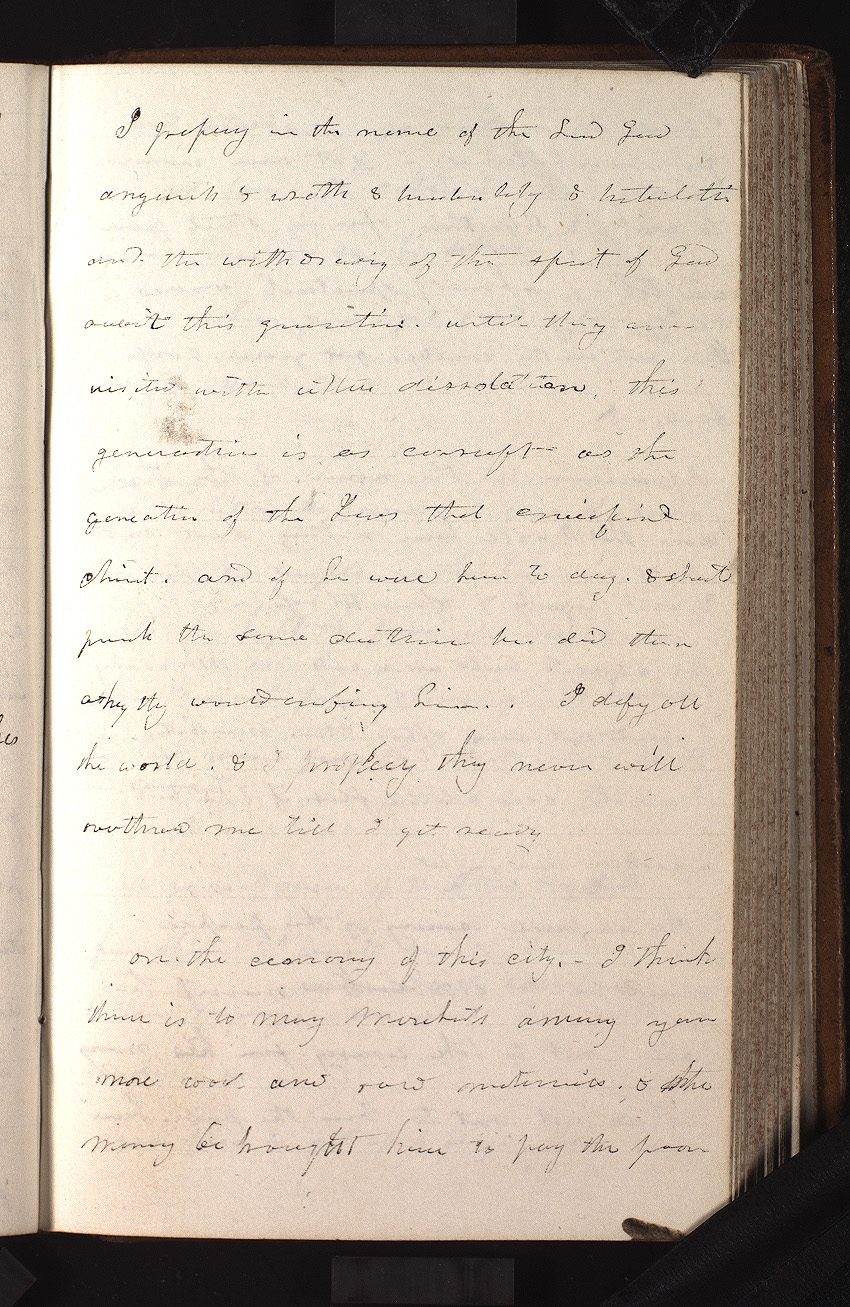 I prophecy in the name of the Lord God
anguish & wrath & tribulation
and the withdrawing of the spirit of God
await this generation. until they are
visited with utter dessolation. this
generation is as corrupt as the
generation of the Jews that crucified
christ. and if he were here to day. & should
preach the same doctrine he did then
why they would crucify him. . I defy all
the world. & I prophecy they never will
overthrow me till I get ready
on the economy of this city. - I think
there is to many Merchants among you
more wool and raw materials. & the
money be brought here to pay the poor
es